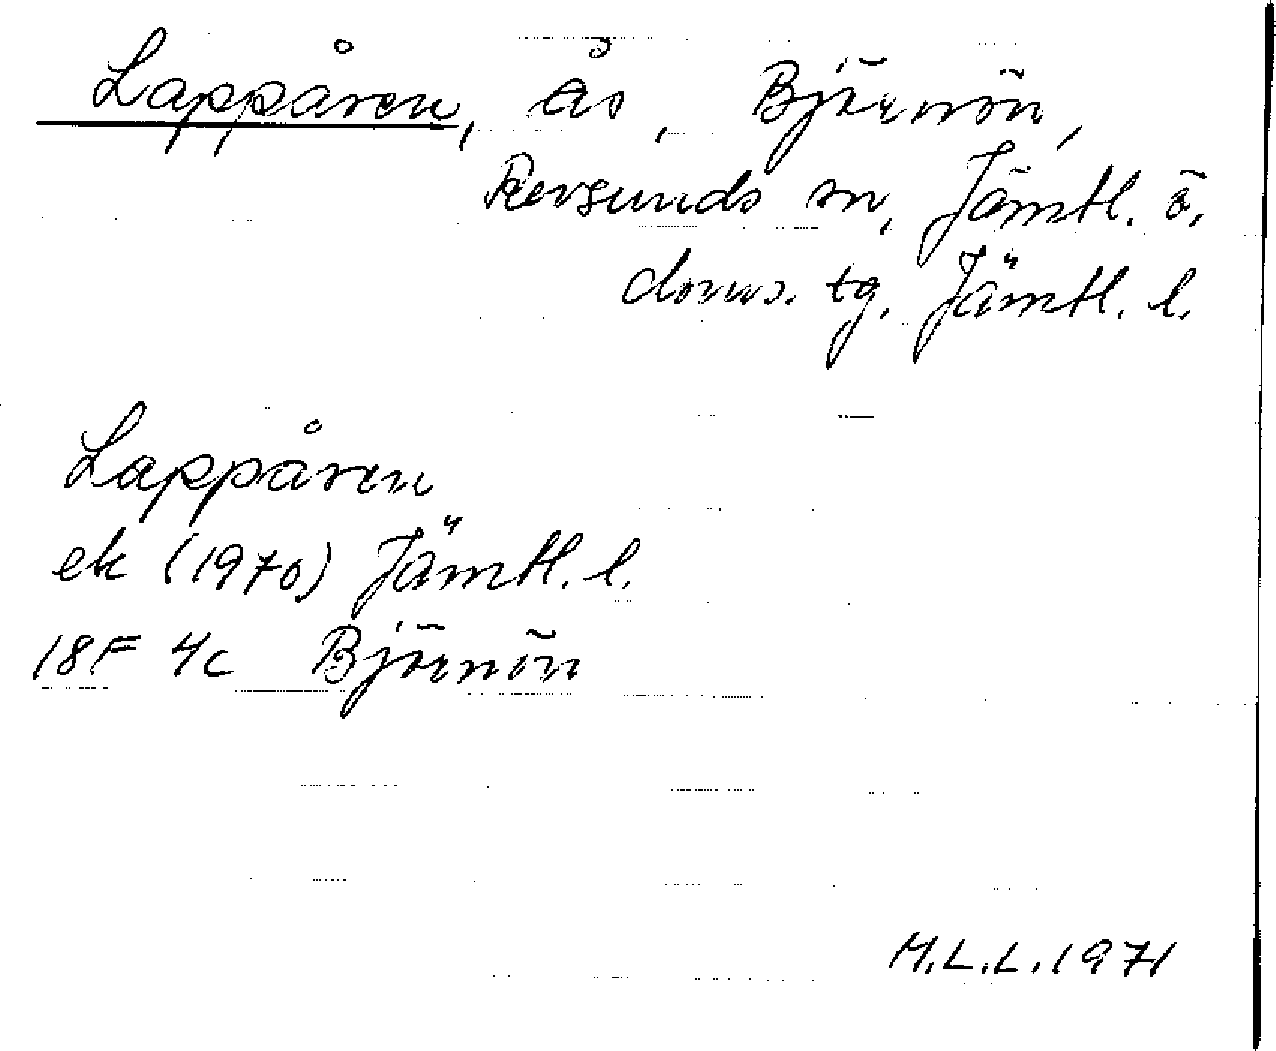 Lappåren, ås, Björnön,
Revsunds sn, Jämtl. ö.
doms. tg. Jämtl. l.
Lappåren
ek (1970) Jämtl. l.
18F 4c Björnön
M.L.L. 1971